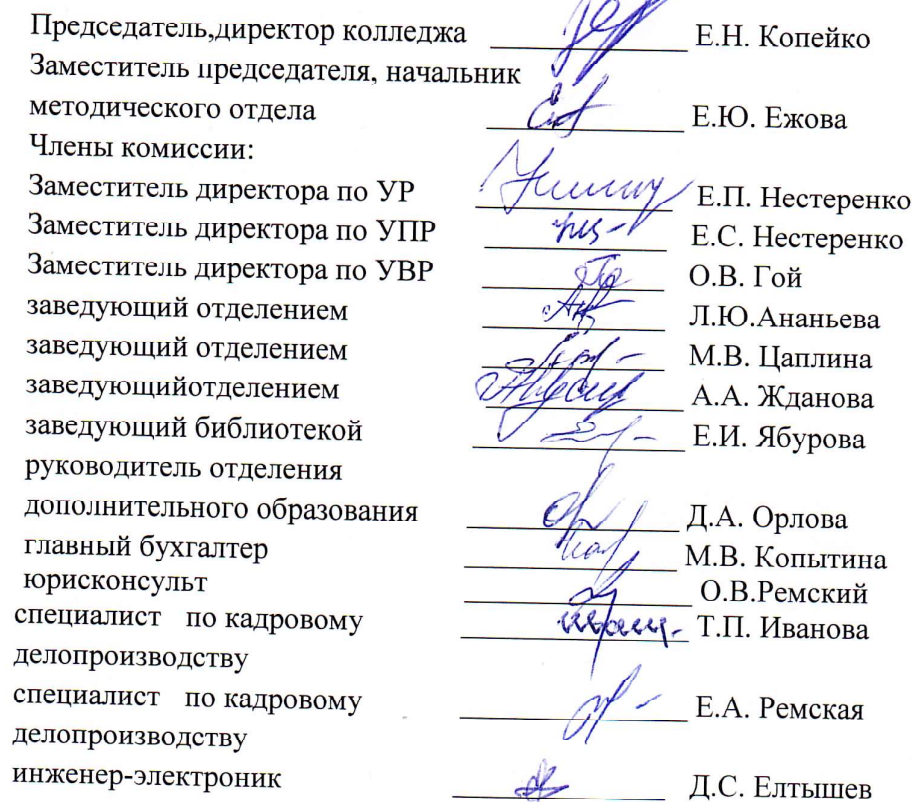 Председатель,директор колледжа ____________ Е.Н. Копейко
Заместитель председателя, начальник
методического отдела ____________ Е.Ю. Ежова
Члены комиссии:
Заместитель директора по УР ____________ Е.П. Нестеренко
Заместитель директора по УПР ____________ Е.С. Нестеренко
Заместитель директора по УВР ____________ О.В. Гой
заведующий отделением ____________ Л.Ю.Ананьева
заведующий отделением ____________ М.В. Цаплина
заведующийотделением ____________ А.А. Жданова
заведующий библиотекой ____________ Е.И. Ябурова
руководитель отделения
дополнительного образования ____________ Д.А. Орлова
главный бухгалтер ____________ М.В. Копытина
юрисконсульт ____________ О.В.Ремский
специалист по кадровому ____________ Т.П. Иванова
делопроизводству
специалист по кадровому ____________ Е.А. Ремская
делопроизводству
инженер-электроник ____________ Д.С. Елтышев